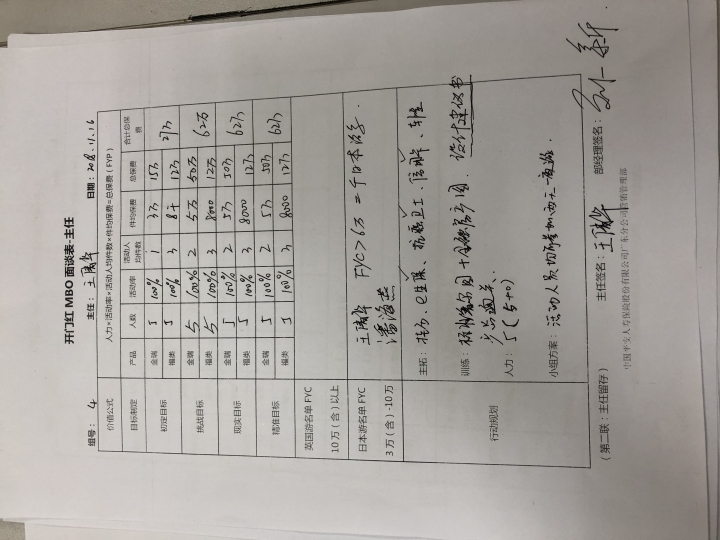 开门红 MBO 面谈表-主任
组号： 4 主任： 日期：2018.11.16
价值公式 人力×活动率×活动人均件数×件均保费=总保费（FYP）
目标制定 产品 人数 活动率 活动人均件数 件均保费 总保费 合计总保费
初定目标 金瑞 5 100% 1 3万 15万 27万
福类 5 100% 3 8千 12万
挑战目标 金瑞 5 100% 2 5万 50万 62万
福类 5 100% 3 8000 12万
现实目标 金瑞 5 100% 2 5万 50万 62万
福类 5 100% 3 8000 12万
精准目标 金瑞 5 100% 2 5万 50万 62万
福类 5 100% 3 8000 12万
英国游名单 FYC
10 万（含）以上
日本游名单 FYC
3 万（含）-10 万
FYC>6万=千日本游学.
行动规划
主拓：
训练： 设计建议书
人力： 5(5+0)
小组方案： 活动人员均可参加两天一夜游.
主任签名： 部经理签名：
（第二联：主任留存） 中国平安人寿保险股份有限公司广东分公司营销管理部